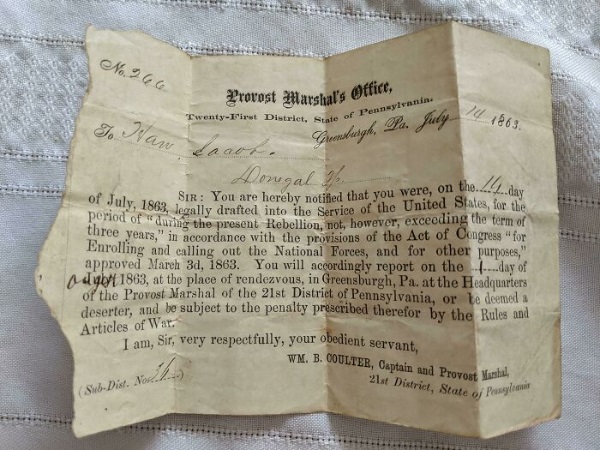 No. 266
Provost Marshal's Office,
Twenty-First District, State of Pennsylvania.
Greensburg, Pa. July 14 1863.
To Haw, Jacob.
Donegal Tp
SIR: You are hereby notified that you were, on the 14 day
of July, 1863, legally drafted into the Service of the United States, for the
period of "during the present Rebellion, not, however, exceeding the term of
three years," in accordance with the provisions of the Act of Congress "for
Enrolling and calling out the National Forces, and for other purposes,"
approved March 3d, 1863. You will accordingly report on the 1 day of
1863, at the place of rendezvous, in Greensburg, Pa. at the Headquarters
of the Provost Marshal of the 21st District of Pennsylvania, or be deemed a
deserter, and be subject to the penalty prescribed therefor by the Rules and
Articles of War.
I am, Sir, very respectfully, your obedient servant,
WM. B. COULTER, Captain and Provost Marshal,
(Sub-Dist. No. )
21st District, State of Pennsylvania